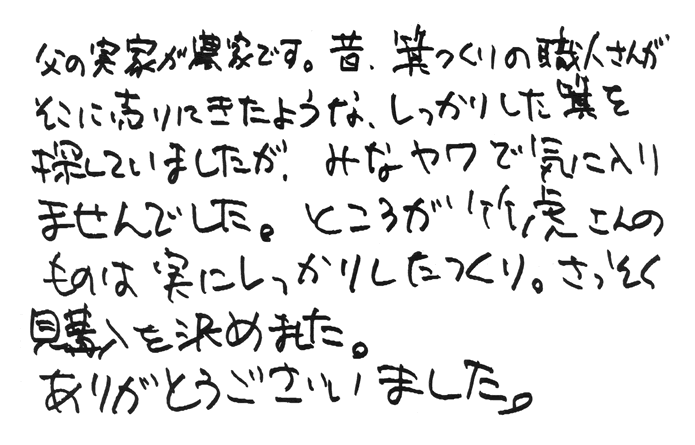 父の実家が農家です。昔、箕つくりの職人さんが
そこに売りにきたような、しっかりした箕を
探していましたが、みなヤワで気に入り
ませんでした。ところが竹虎さんの
ものは実にしっかりしたつくり。さっそく
購入を決めました。
ありがとうございました。